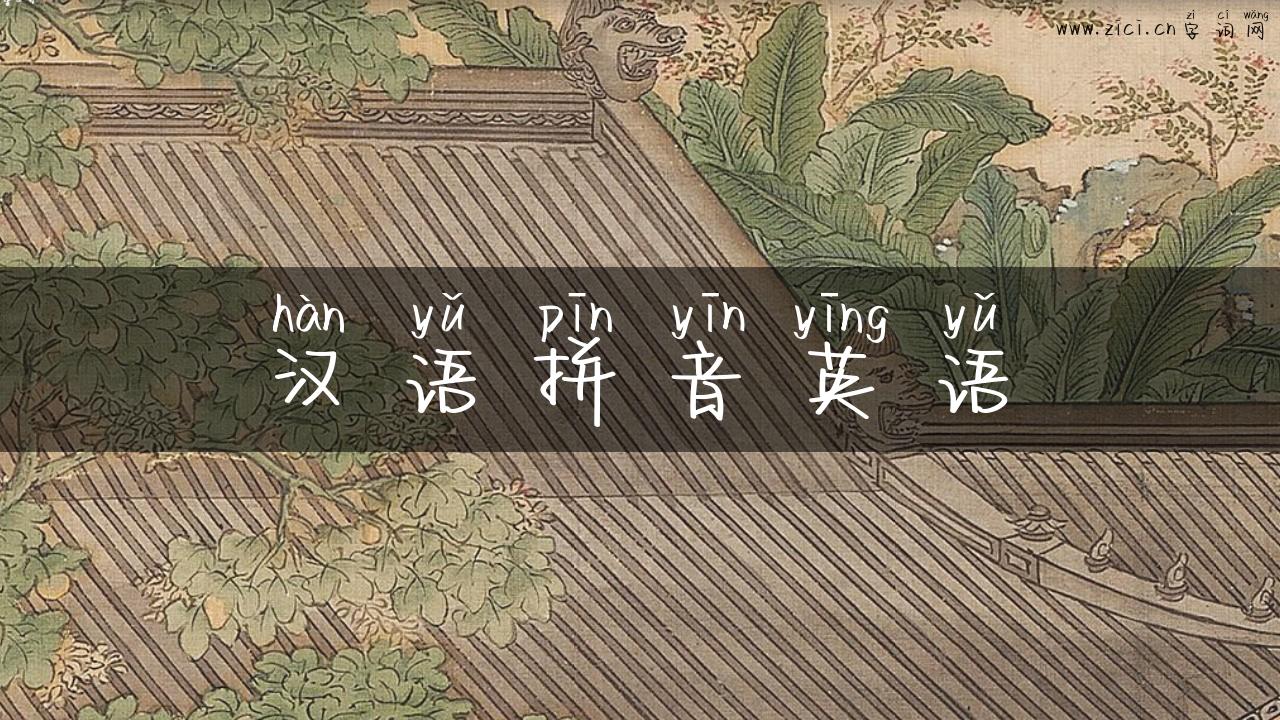 zì cí wǎng
www.zici.cn 字 词 网
hàn yǔ pīn yīn yīng yǔ
汉 语 拼 音 英 语